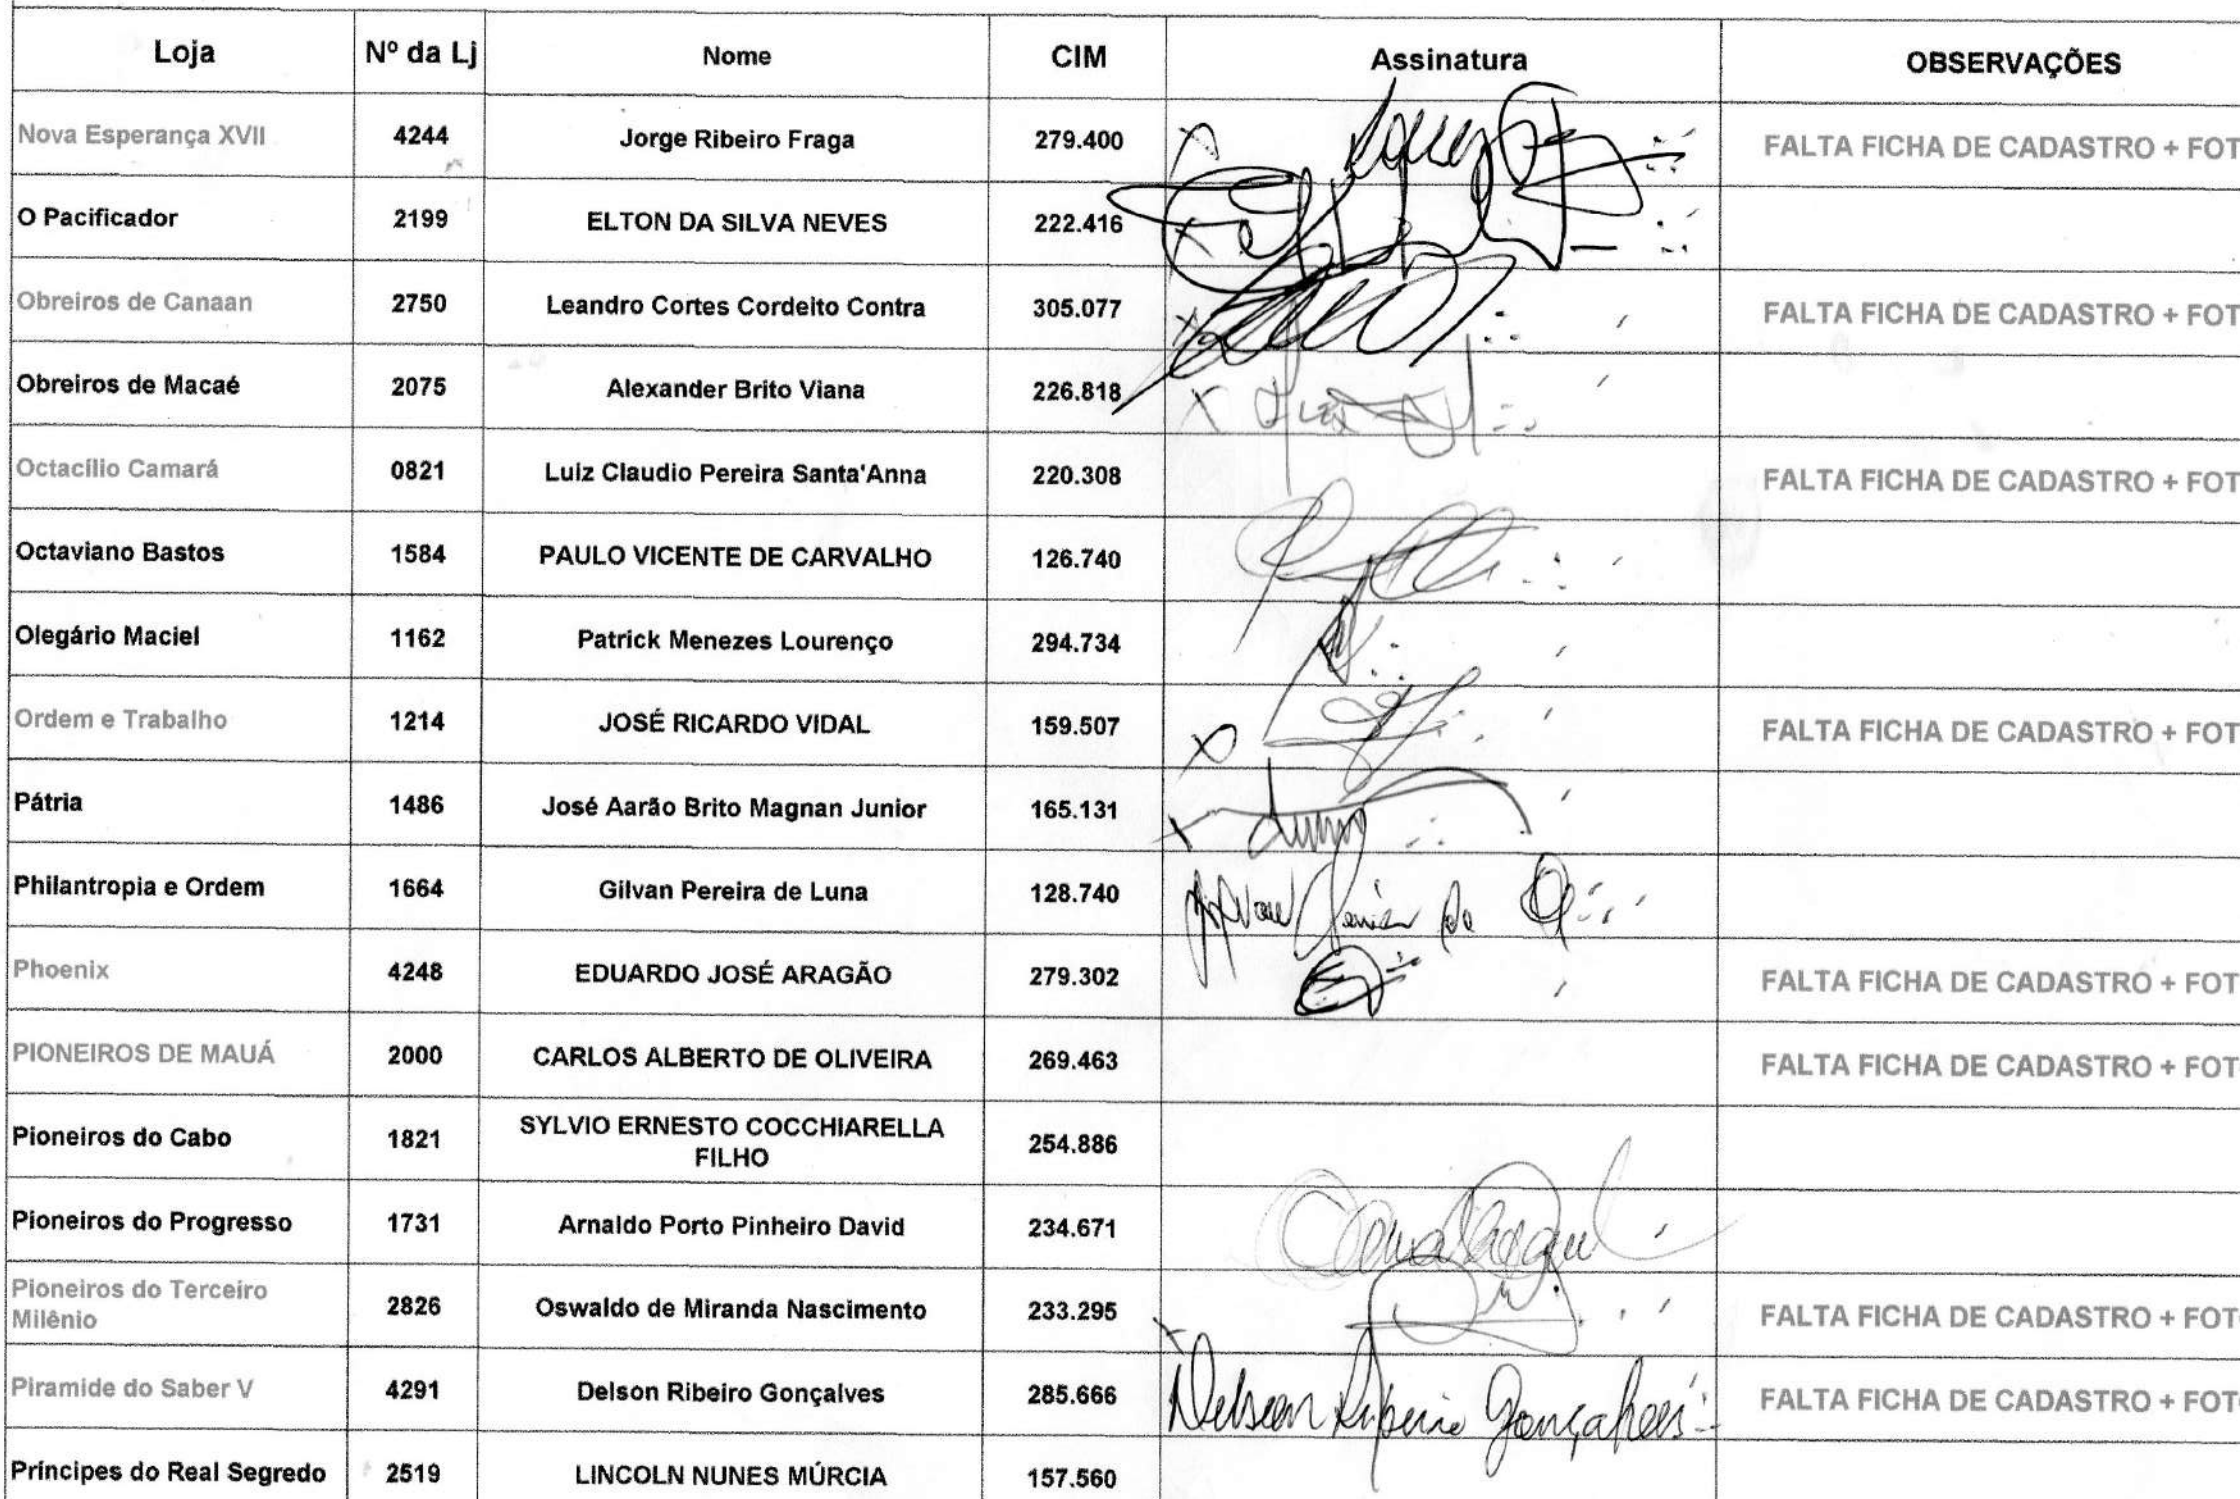 Loja Nº da Lj Nome CIM Assinatura OBSERVAÇÕES
Nova Esperança XVII 4244 Jorge Ribeiro Fraga 279.400 FALTA FICHA DE CADASTRO + FOT
O Pacificador 2199 ELTON DA SILVA NEVES 222.416
Obreiros de Canaan 2750 Leandro Cortes Cordeito Contra 305.077 FALTA FICHA DE CADASTRO + FOT
Obreiros de Macaé 2075 Alexander Brito Viana 226.818
Octacílio Camará 0821 Luiz Claudio Pereira Santa'Anna 220.308 FALTA FICHA DE CADASTRO + FOT
Octaviano Bastos 1584 PAULO VICENTE DE CARVALHO 126.740
Olegário Maciel 1162 Patrick Menezes Lourenço 294.734
Ordem e Trabalho 1214 JOSÉ RICARDO VIDAL 159.507 FALTA FICHA DE CADASTRO + FOT
Pátria 1486 José Aarão Brito Magnan Junior 165.131
Philantropia e Ordem 1664 Gilvan Pereira de Luna 128.740
Phoenix 4248 EDUARDO JOSÉ ARAGÃO 279.302 FALTA FICHA DE CADASTRO + FOT
PIONEIROS DE MAUÁ 2000 CARLOS ALBERTO DE OLIVEIRA 269.463 FALTA FICHA DE CADASTRO + FOT
Pioneiros do Cabo 1821 SYLVIO ERNESTO COCCHIARELLA 254.886
FILHO
Pioneiros do Progresso 1731 Arnaldo Porto Pinheiro David 234.671
Pioneiros do Terceiro
Milênio 2826 Oswaldo de Miranda Nascimento 233.295 FALTA FICHA DE CADASTRO + FOT
Piramide do Saber V 4291 Delson Ribeiro Gonçalves 285.666 Delson Ribeiro Gonçalves FALTA FICHA DE CADASTRO + FOT
Príncipes do Real Segredo 2519 LINCOLN NUNES MÚRCIA 157.560